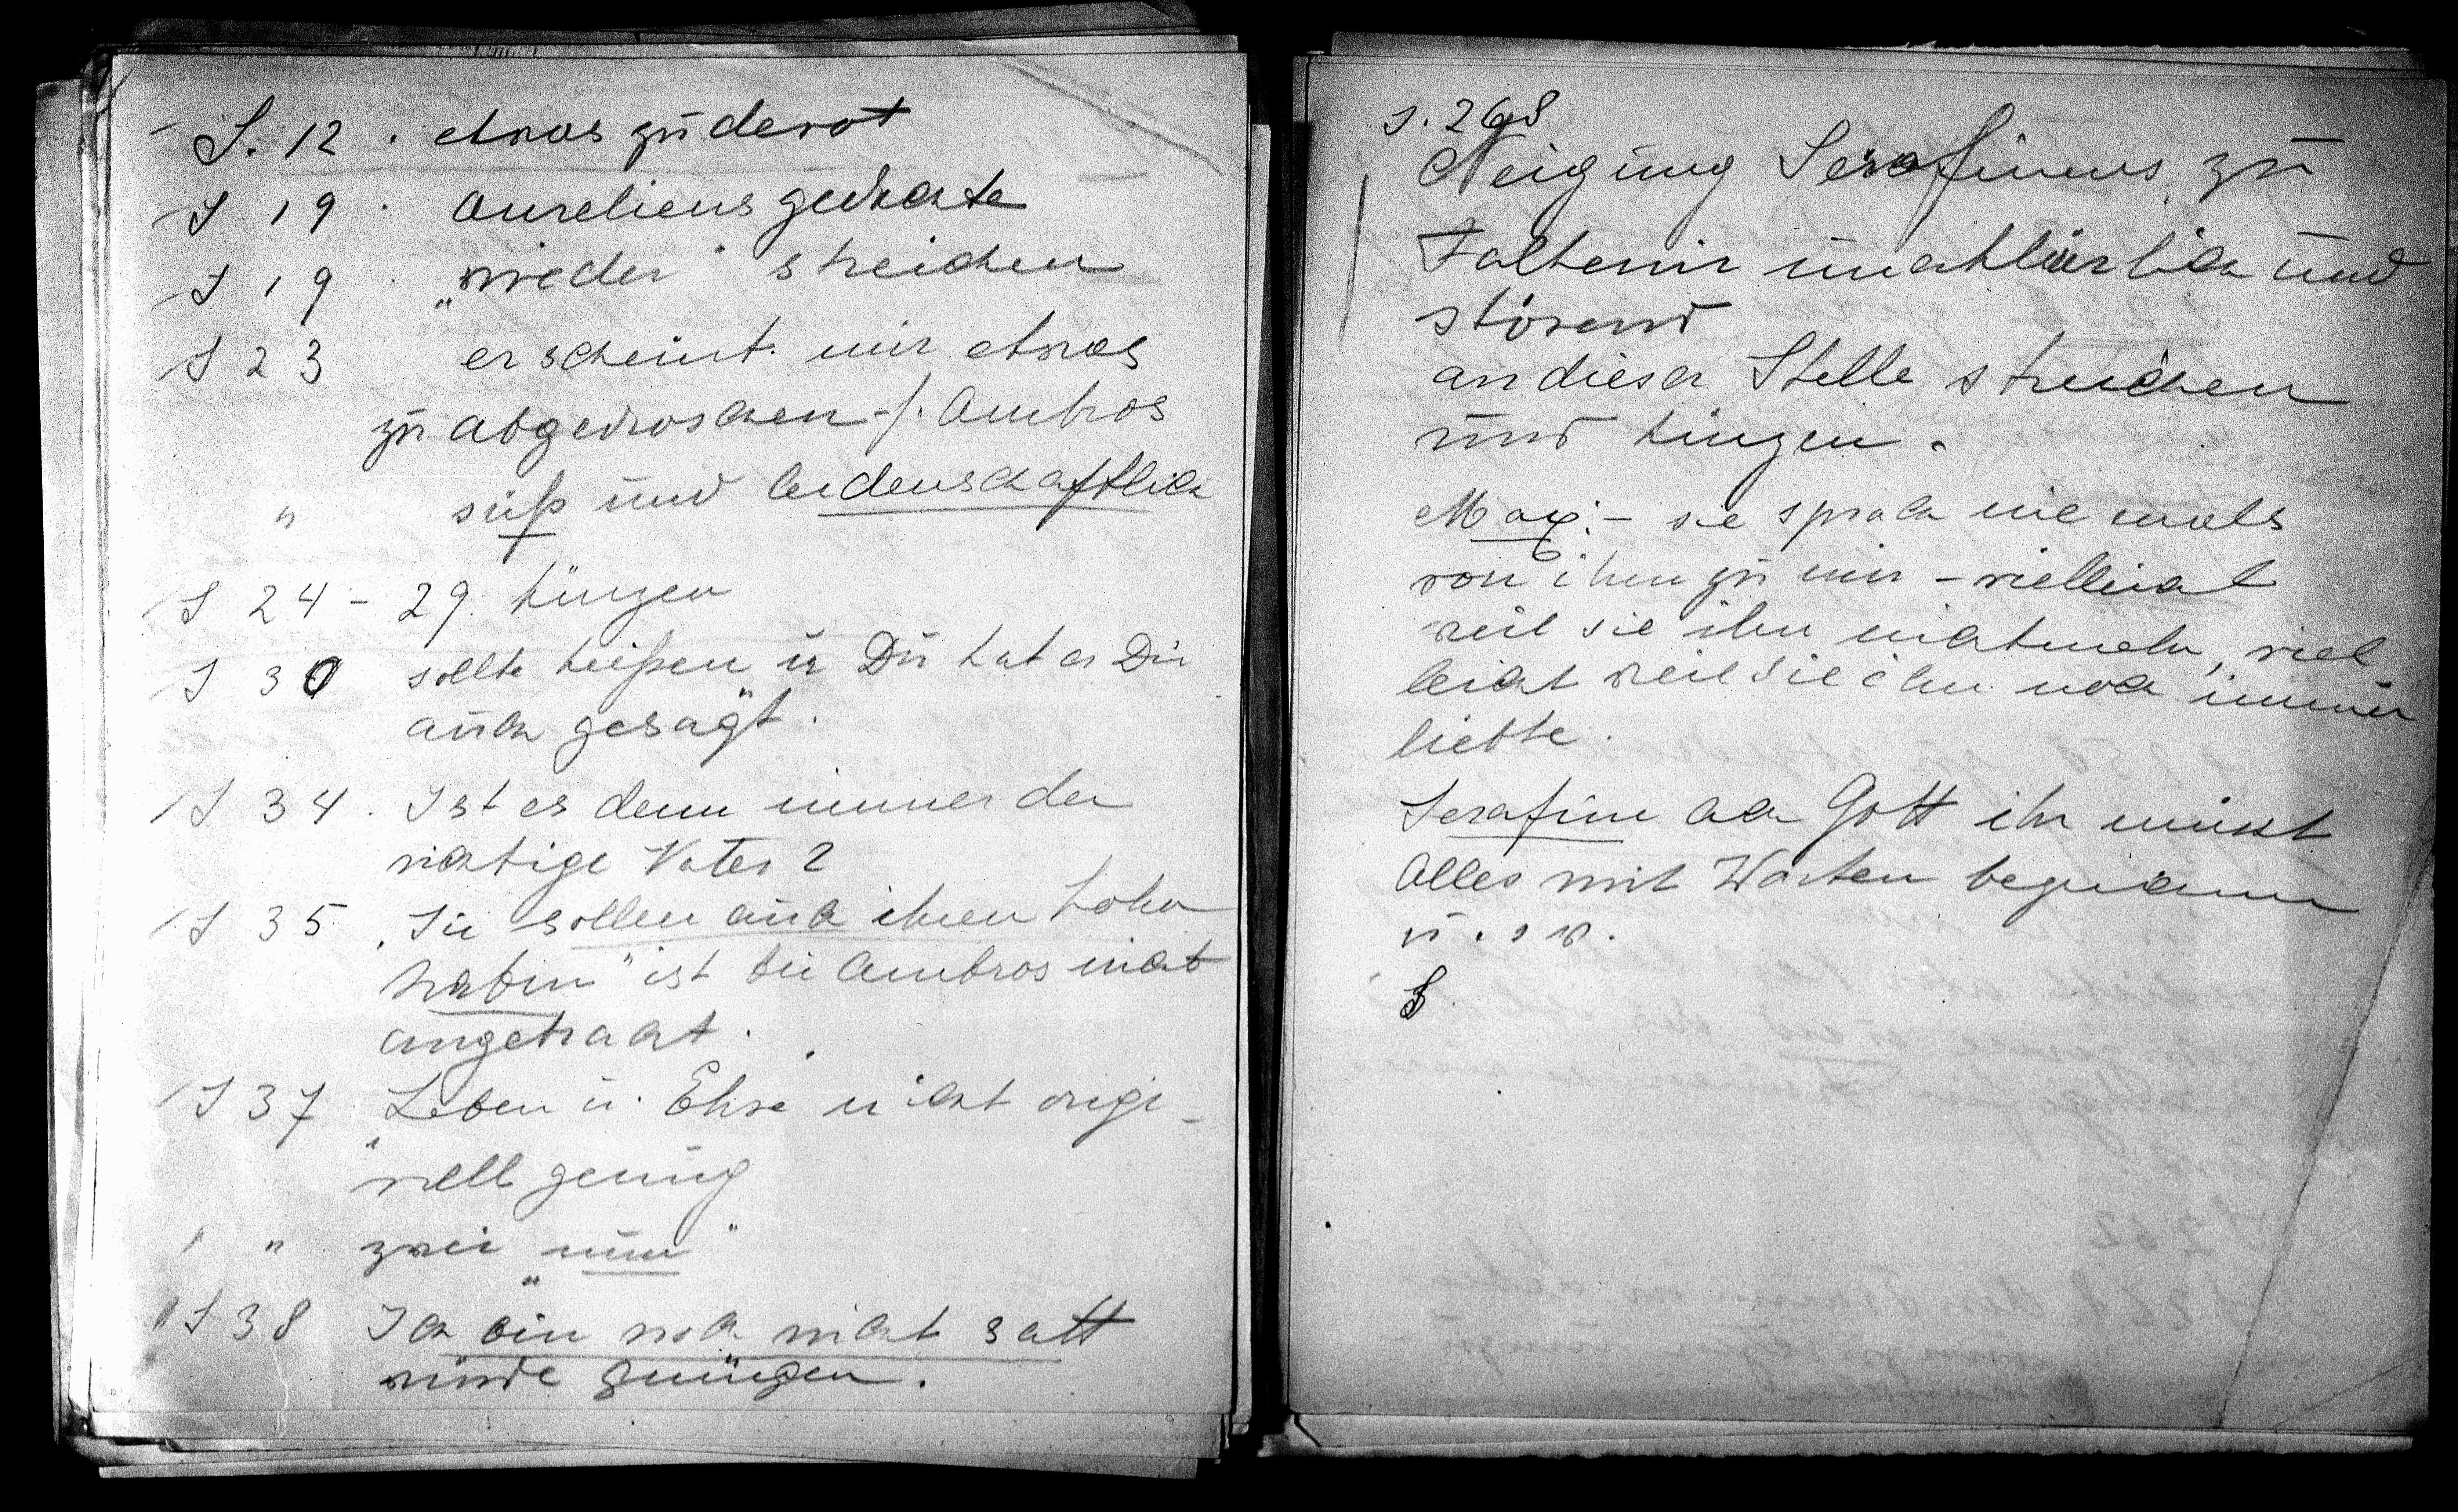 S. 12 . etwas zu devot
S 19 . Aureliens gedachte
S 19 . „wieder" streichen
S 23 erscheint mir etwas
zu abgedroschen -/. Ambros
" süß und leidenschaftlich
S 24 - 29. kürzen
S 30 sollte heißen u Du hat er Dir
auch gesagt.
S 34 . Ist es denn immer der
richtige Vater?
S 35 „Sie sollen auch ihren Lohn
haben" ist bei Ambros nicht
angebracht.
S 37 „Leben u. Ehre nicht origi-
nell genug
" " zwei „nun"
S 38 Ich bin noch nicht satt
würde genügen.
S. 268
Neigung Serafinens zu
Falkenir unerklärlich und
störend
an dieser Stelle streichen
und kürzen.
Max: - sie sprach niemals
von ihm zu mir - vielleicht
weil sie ihn nicht mehr, viel
leicht weil sie ihn noch immer
liebte.
Serafine ach Gott ihr müsst
Alles mit Worten
u. s w.
S